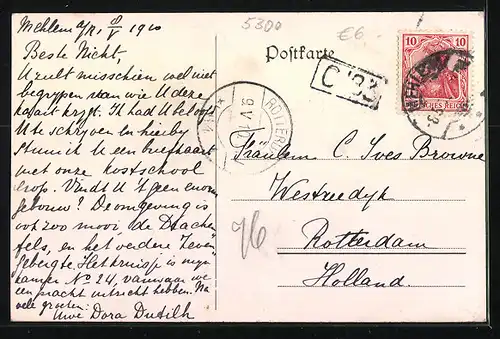 Mehlem a/Rh 8/V 1910
Beste Nicht,
U zult misschien wel niet
begrypen van wie U deze
kaart krygt. Ik had U beloofd
U te schryven en hierby
stuur ik U een briefkaart
met onze kostschool
erop. Vindt U 't geen enorm
gebouw? De omgeving is
ook zoo mooi, de Drachen-
fels, en het verdere Zeven-
gebergte. Het kruisje is myn
kamer No 24, vanwaar we
een pracht uitzicht hebben. Na
vele groeten:
Uwe Dora Dutilh
5300
€6.
Postkarte
10 10
DEUTSCHES REICH
MEHLEM
C 33
ROTTERDAM
Fräulein C. Ives Browne
Westzeedyk
76
Rotterdam
Holland.